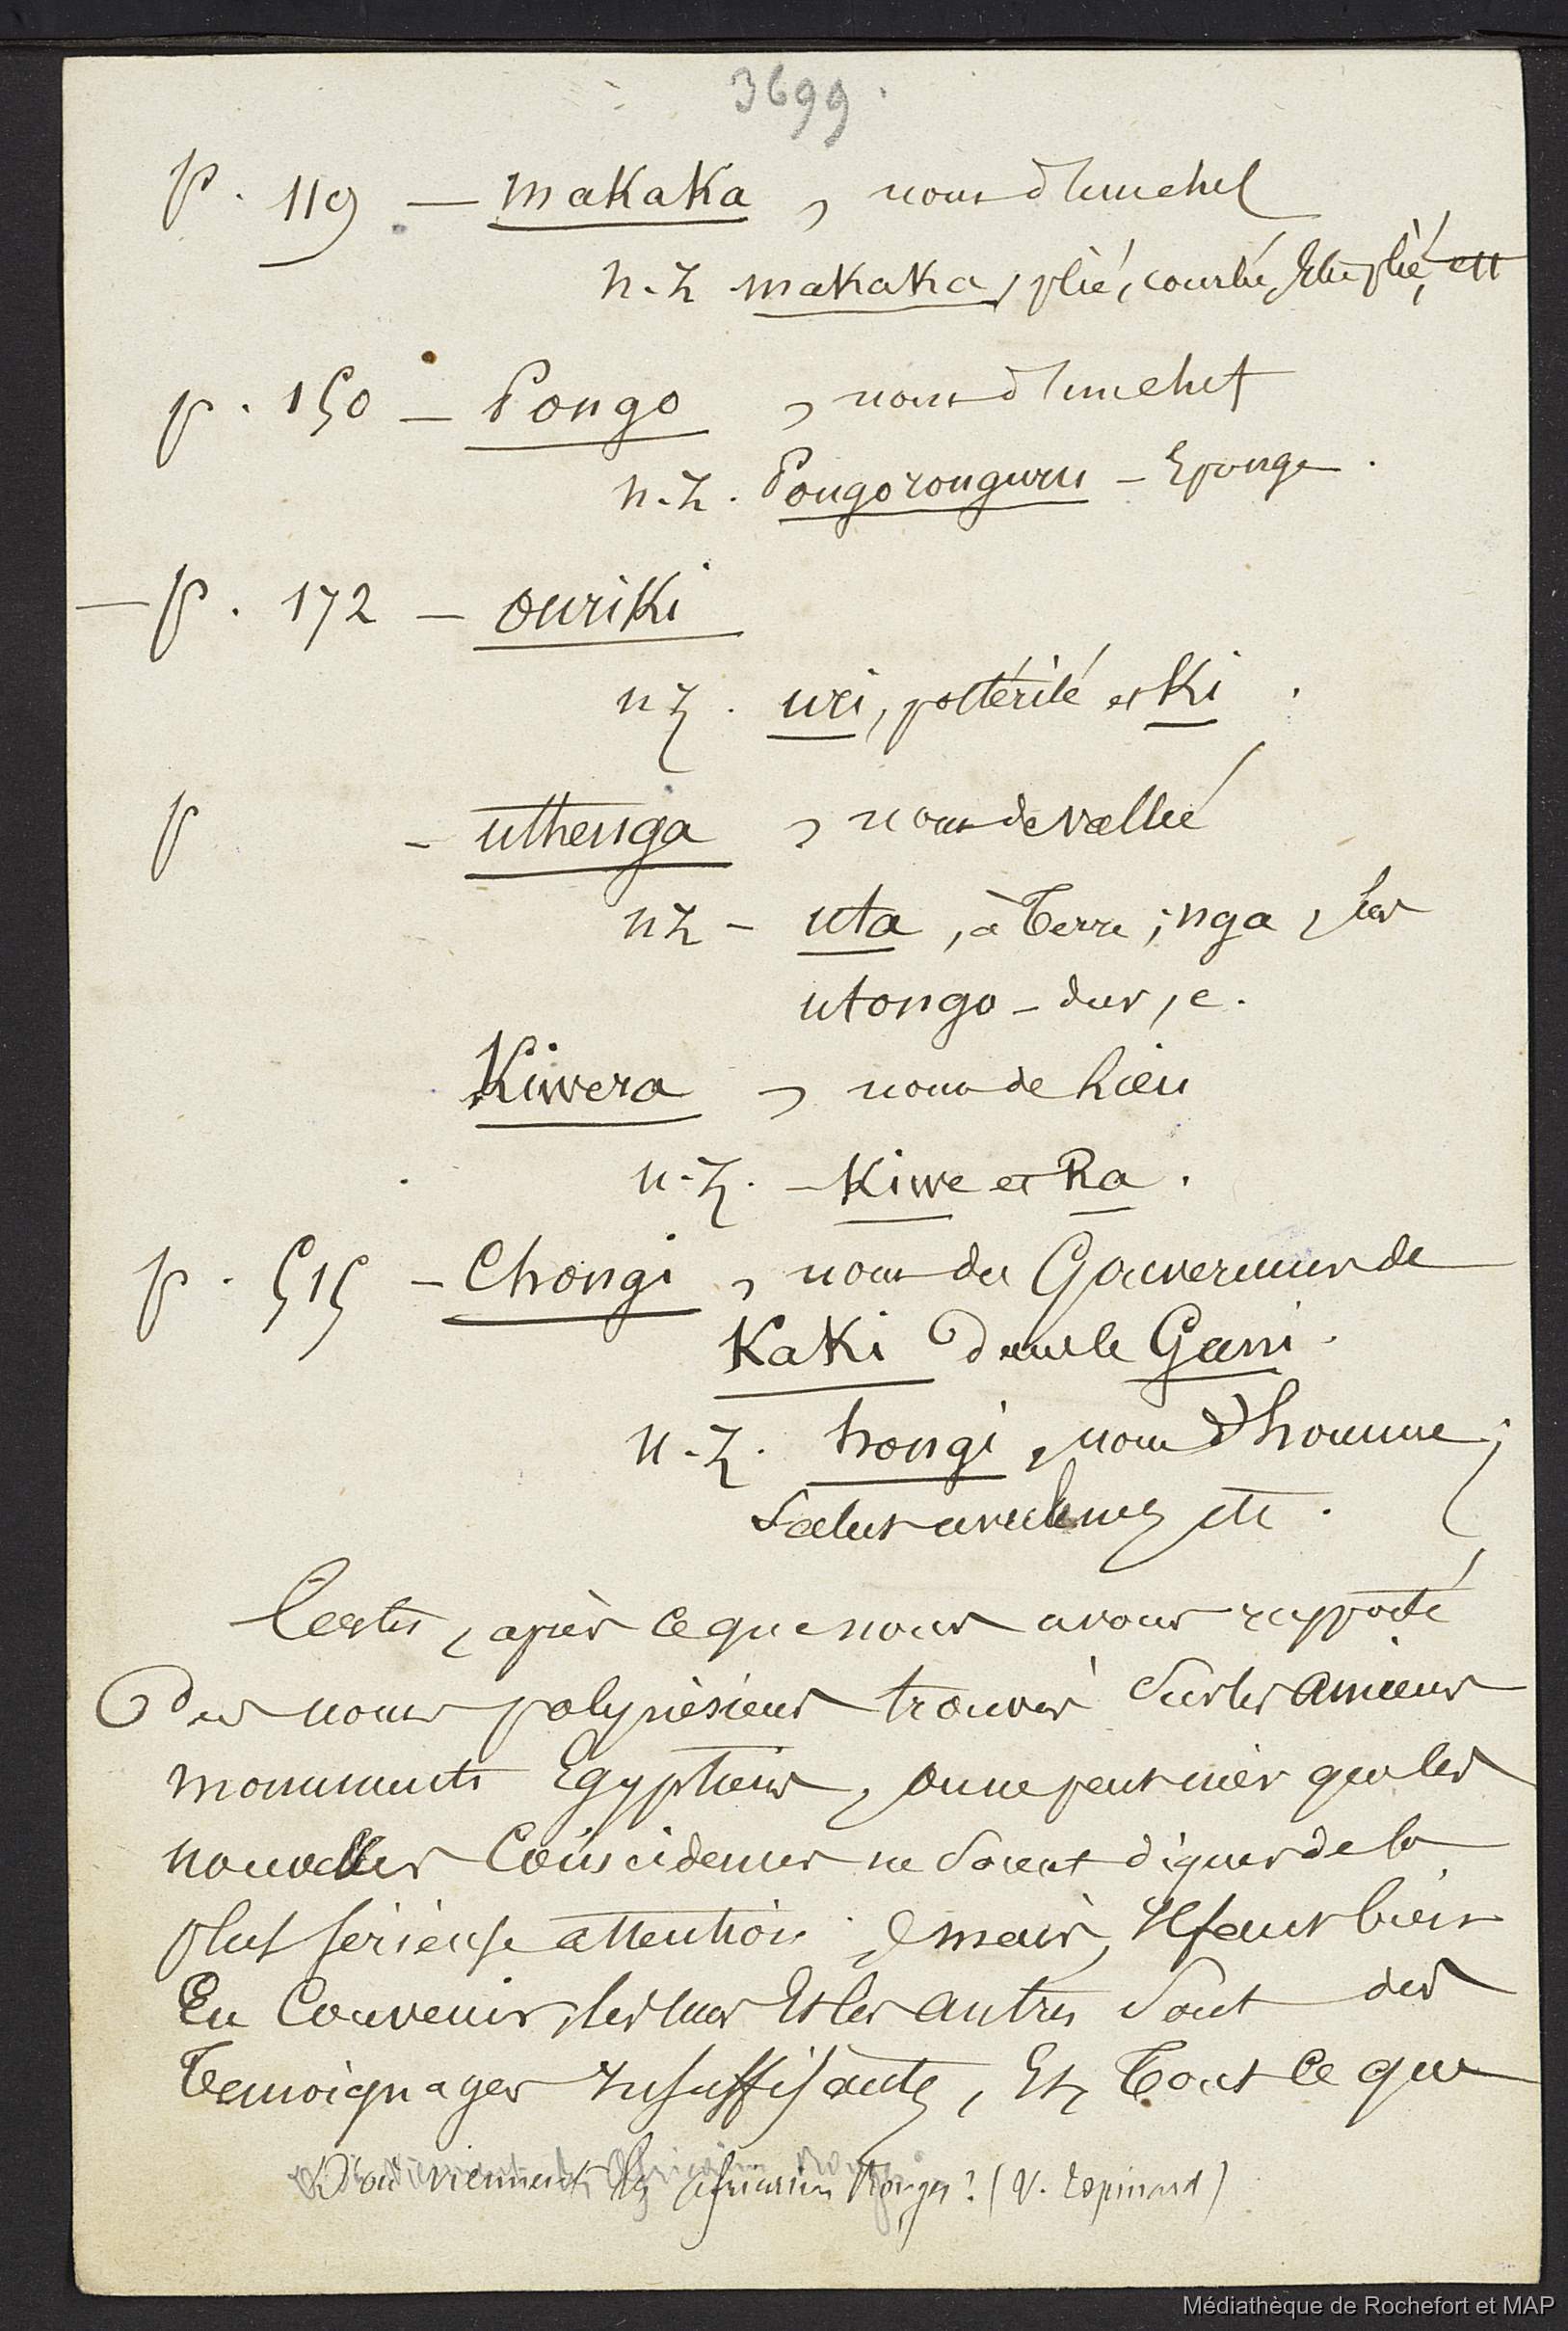 3699.
p. 119 — makaka, nom d'un chef
n. z makaka, plié, courbé, être plié, ett
p. 150 — Pongo, nom d'un chef
n. z. Pongoronguru — Eponge.
— p. 172 — ouriki
n z. uri, postérité et Ki.
p — uthenga, nom de vallée
n z — uta, à Terre; nga, les
utongo — dur, e.
Kiwera, nom de lieu
n. z. — Kiwe et Ra.
p. 515 — Chongi, nom du Gouverneur de
Kaki dans le Gani.
n. z. hongi, nom d'homme;
Salut avec le nez etc.
Certes, après ce que nous avons rapporté
Des noms polynésiens trouvés sur les anciens
monuments Egyptiens, on ne peut nier que les
nouvelles Coïncidences ne soient dignes de la
plus sérieuse attention; mais, Il faut bien
En Convenir, les unes Et les autres sont des
Temoignages Insuffisants, Et, Tout ce que
D'où viennent les africains Rouges? (V. Espinard)
Médiathèque de Rochefort et MAP